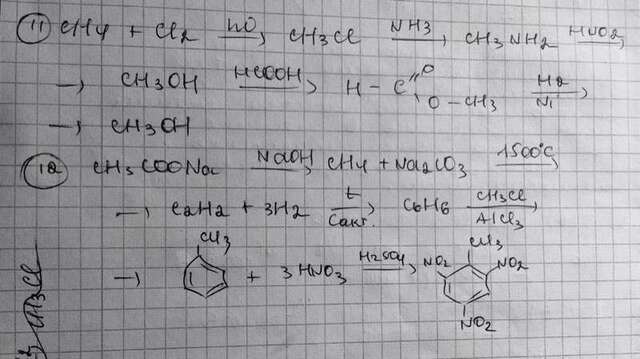 11 CH4 + Cl2 hν, CH3Cl NH3, CH3NH2 HNO2,
→ CH3OH HCOOH, H - C O O - CH3 H2 Ni,
→ CH3OH
12 CH3COONa NaOH, CH4 + Na2CO3 1500°C,
→ C2H2 + 3H2 t Cакт., C6H6 CH3Cl AlCl3,
CH3 CH3
→ + 3HNO3 H2SO4, NO2 NO2
NO2
CH3Cl